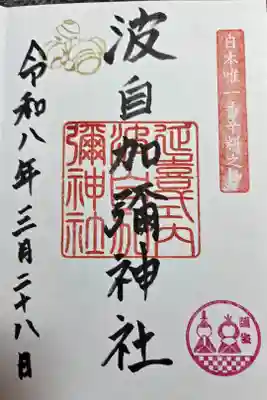 日本唯一香辛料之神
波自加彌神社
延喜式内
波自加
彌神社
令和八年三月二十八日